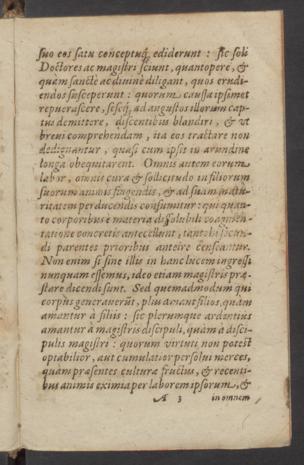 suo eos satu conceptuq́; ediderunt : sic soli
Doctores ac magistri sciunt, quantopere, &
quàm sanctè ac diuinè diligant, quos erudi-
endos susceperunt : quorum caussa ipsimet
repuerascere, sesq́;, ad angustos illorum cap-
tus demittere, discentibus blandiri, & vt
breui comprehendam, ita eos tractare non
dedignantur, quasi cum ipsis in arundine
longa obequitarent. Omnis autem eorum
labor, omnis cura & sollicitudo in filiorum
suorum animis fingendis, & ad suam matu-
ritatem perducendis consumitur: qui quan-
to corporibus è materia dissolubili coagmen-
tatione concretis antecellunt, tantò hi secun-
di parentes prioribus anteire censeantur.
Non enim si sine illis in hanc lucem ingressi
nunquam essemus, ideo etiam magistris præ-
stare dicendi sunt. Sed quemadmodum qui
corpus generauerũt, plus amant filios, quàm
amantur à filiis : sic plerumque ardentius
amantur à magistris discipuli, quàm à disci-
pulis magistri : quorum virtuti non potest
optabilior, aut cumulatior persolui merces,
quàm præsentes culturæ fructus, & recenti-
bus animis eximia per laborem ipsorum, &
A 3 in omnem